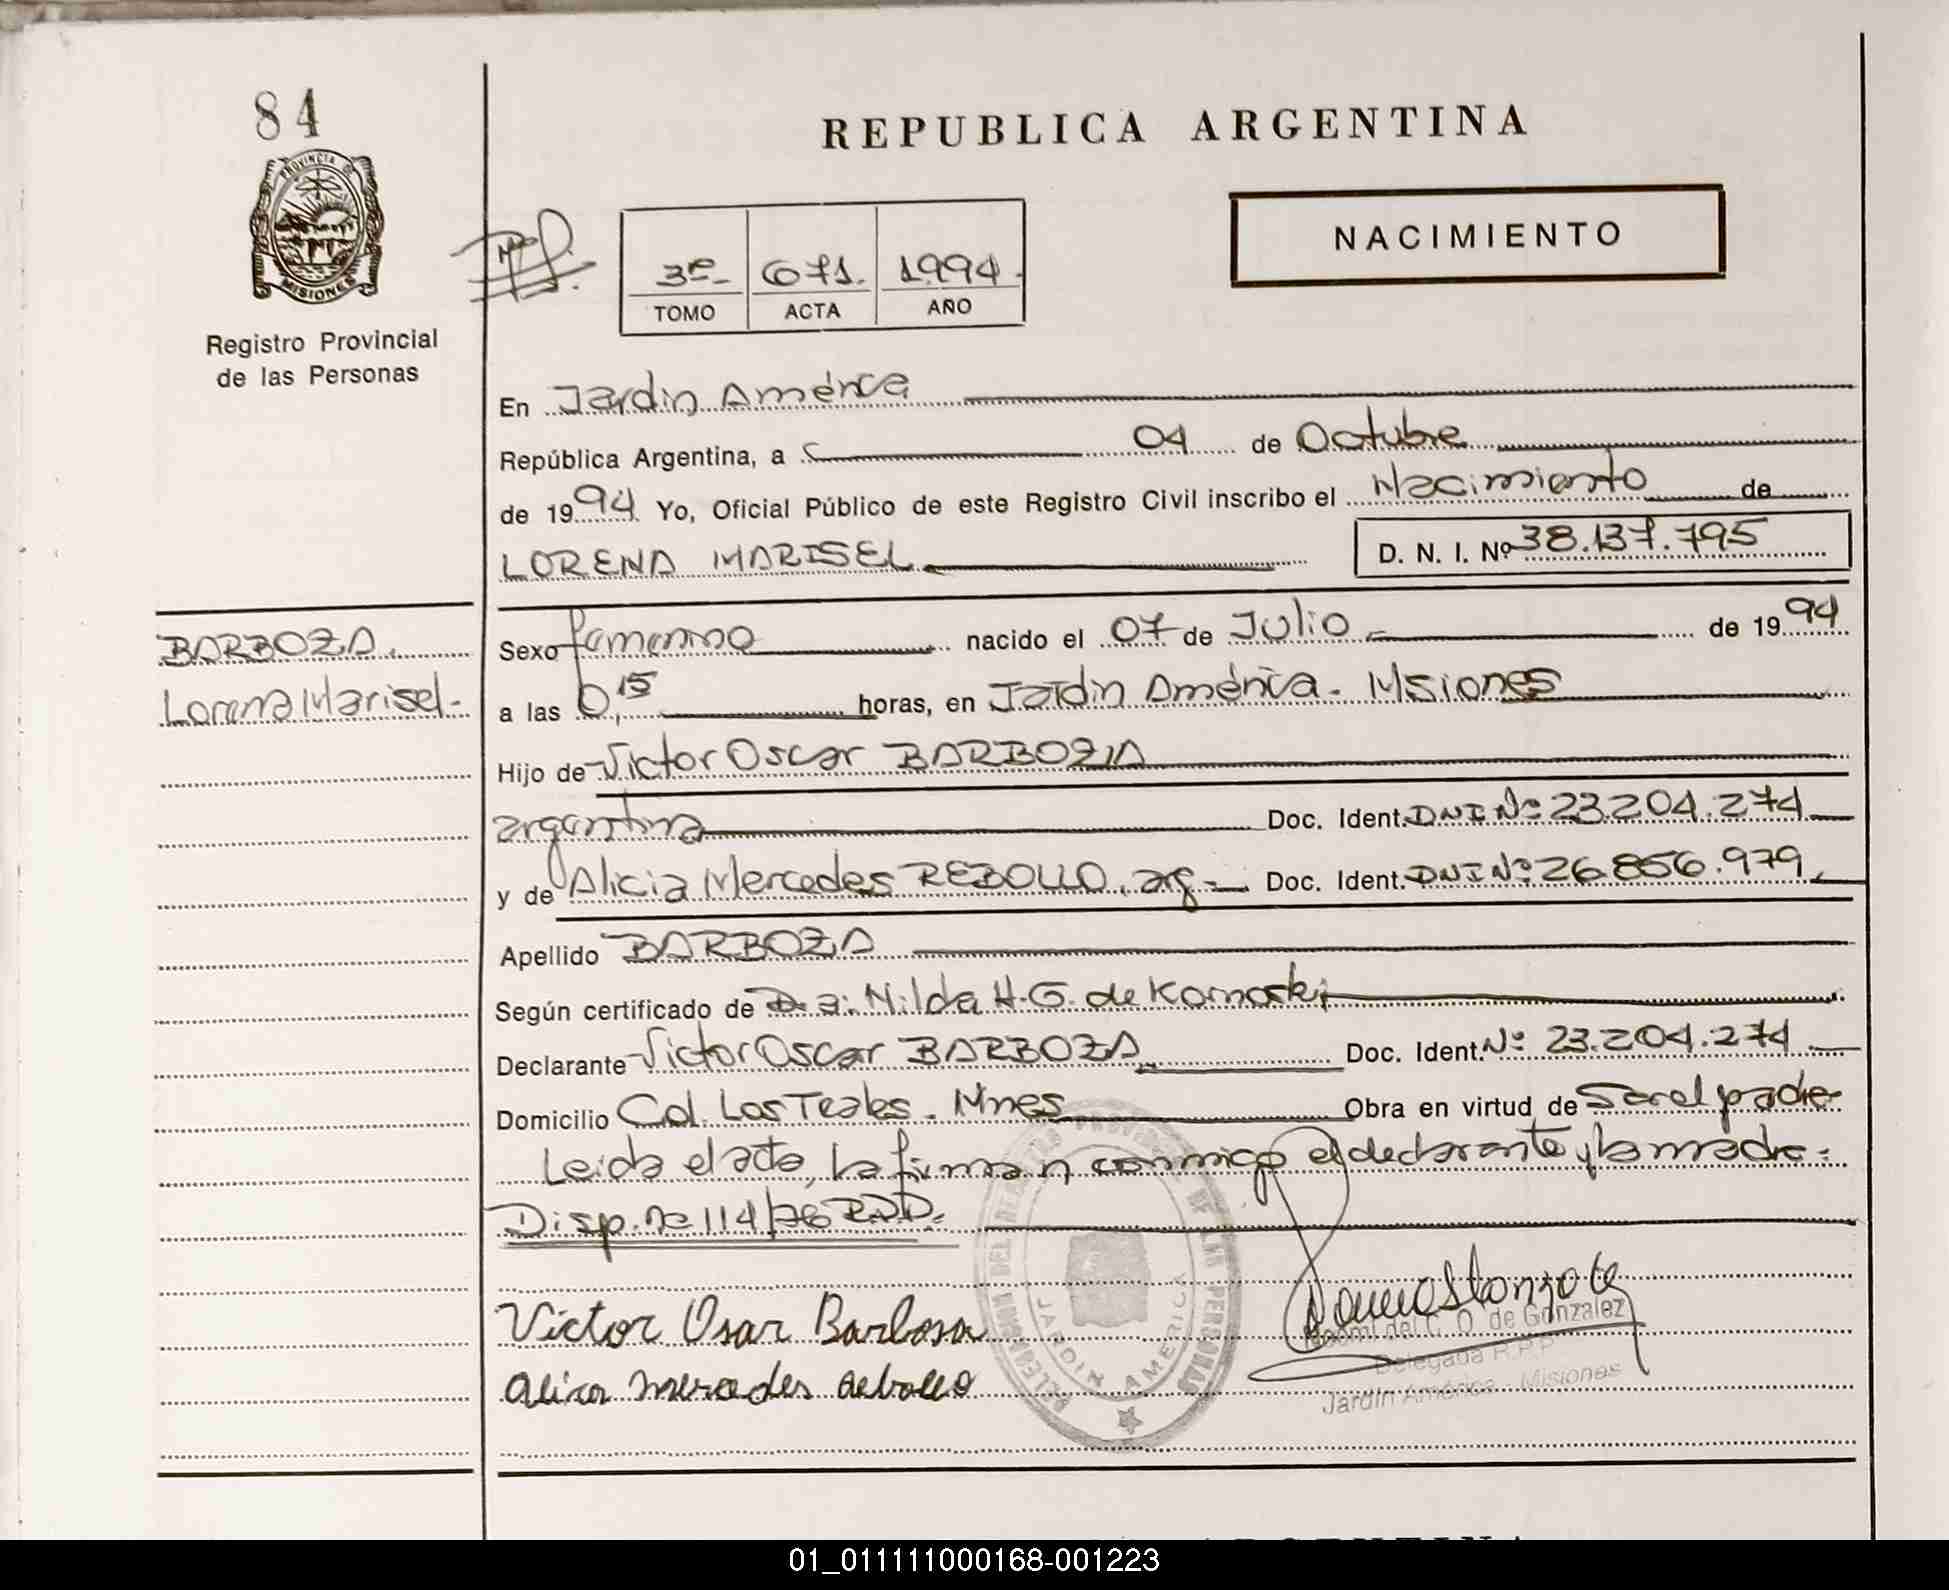 84
PROVINCIA DE
MISIONES
Registro Provincial
de las Personas
REPUBLICA ARGENTINA
NACIMIENTO
3º 671. 1994.
TOMO ACTA AÑO
En Jardín América
República Argentina, a 04 de Octubre
de 1994 Yo, Oficial Público de este Registro Civil inscribo el Nacimiento de
LORENA MARISEL D. N. I. Nº 38.137.795
BARBOZA.
Lorena Marisel.-
Sexo femenino nacido el 07 de Julio de 1994
a las 0,15 horas, en Jardín América. Misiones
Hijo de Victor Oscar BARBOZA
argentina Doc. Ident. DNI Nº 23.204.274
y de Alicia Mercedes REBOLLO, arg. Doc. Ident. DNI Nº 26.856.979
Apellido BARBOZA
Según certificado de Nilda H. G. de
Declarante Victor Oscar BARBOZA Doc. Ident. Nº 23.204.274
Domicilio Col. Los Teales. Mnes Obra en virtud de Ser el padre
Leida el acta, la firman conmigo el declarante y la madre.
Disp. nº 114/76 R.P.P.
Victor Osar Barbosa
Alicia mercedes Rebollo
DELEGACION DEL REGISTRO PROVINCIAL DE LAS PERSONAS
JARDIN AMERICA
Noemi del C. O. de Gonzalez
Delegada R.P.P.
Jardín América - Misiones
01_011111000168-001223